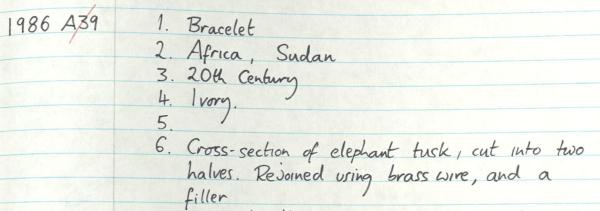 1986 A39 1. Bracelet
2. Africa, Sudan
3. 20th Century
4. Ivory.
5.
6. Cross-section of elephant tusk, cut into two
halves. Rejoined using brass wire, and a
filler